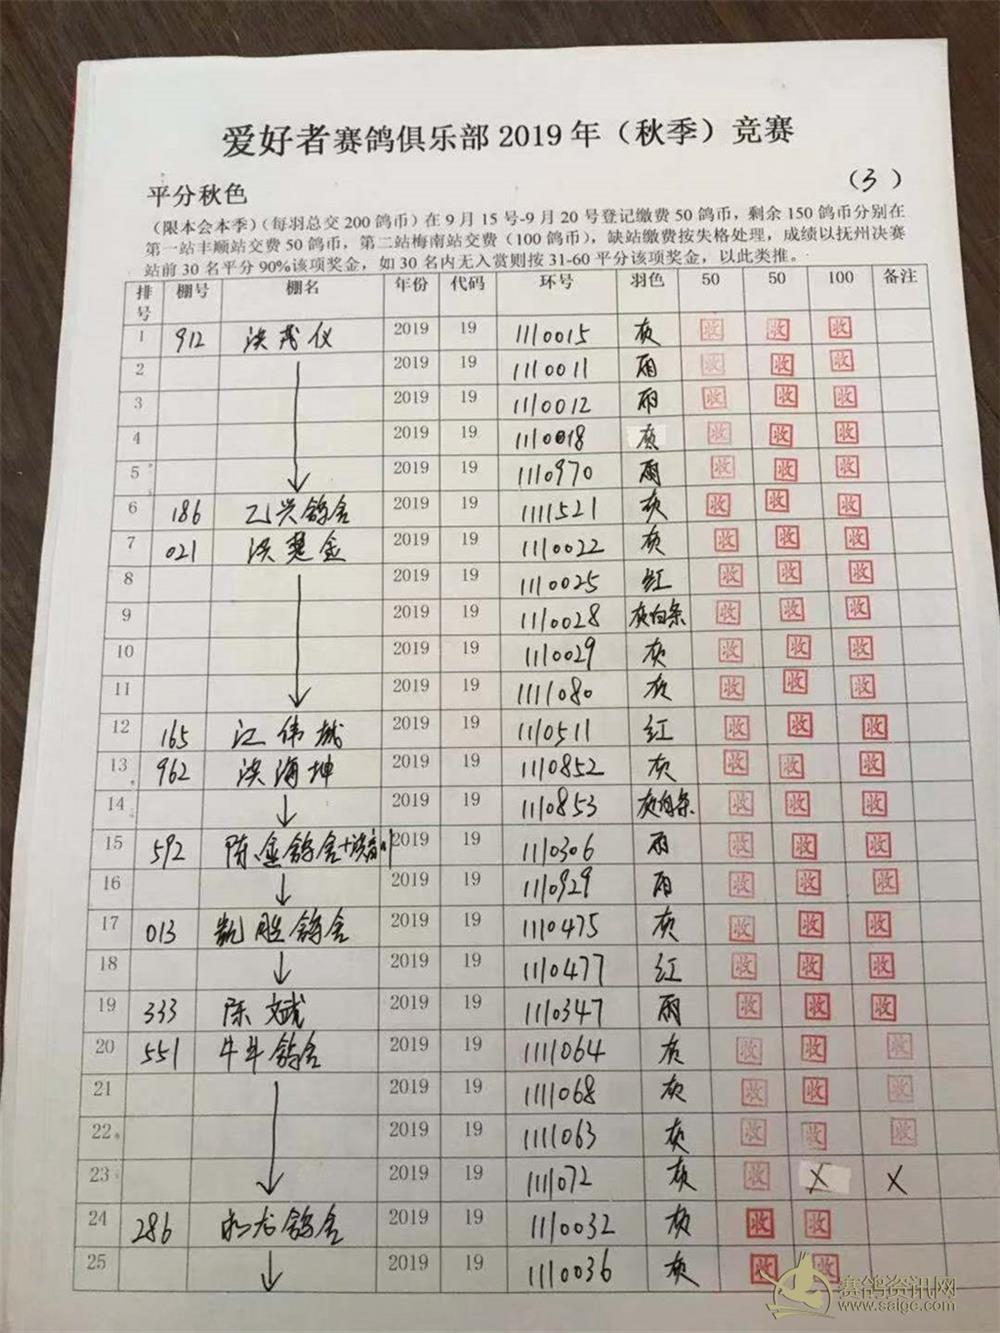 爱好者赛鸽俱乐部2019年（秋季）竞赛
平分秋色 （3）
（限本会本季）（每羽总交200鸽币）在9月15号-9月20号登记缴费50鸽币，剩余150鸽币分别在
第一站丰顺站交费50鸽币，第二站梅南站交费（100鸽币），缺站缴费按失格处理，成绩以抚州决赛
站前30名平分90%该项奖金，如30名内无入赏则按31-60平分该项奖金，以此类推。
排号 棚号 棚名 年份 代码 环号 羽色 50 50 100 备注
1 912 洪茂仪 2019 19 1110015 灰 收 收 收
2 2019 19 1110011 雨 收 收 收
3 2019 19 1110012 雨 收 收 收
4 2019 19 1110018 灰 收 收 收
5 2019 19 1110970 雨 收 收 收
6 186 乙兴鸽舍 2019 19 1111521 灰 收 收 收
7 021 洪楚金 2019 19 1110022 灰 收 收 收
8 2019 19 1110025 红 收 收 收
9 2019 19 1110028 灰白条 收 收 收
10 2019 19 1110029 灰 收 收 收
11 2019 19 1111080 灰 收 收 收
12 165 江伟城 2019 19 1110511 红 收 收 收
13 962 洪海坤 2019 19 1110852 灰 收 收 收
14 2019 19 1110853 灰白条 收 收 收
15 592 陈金鸽舍+洪 2019 19 1110306 雨 收 收 收
16 2019 19 1110929 雨 收 收 收
17 013 凯胜鸽舍 2019 19 1110475 灰 收 收 收
18 2019 19 1110477 红 收 收 收
19 333 陈斌 2019 19 1110347 雨 收 收 收
20 551 牛牛鸽舍 2019 19 1111064 灰 收 收 收
21 2019 19 1111068 灰 收 收 收
22 2019 19 1111063 灰 收 收 收
23 2019 19 1111072 灰 收 X X
24 286 龙鸽舍 2019 19 1110032 灰 收 收
25 2019 19 1110036 灰 收 收
赛鸽资讯网
www.saigc.com